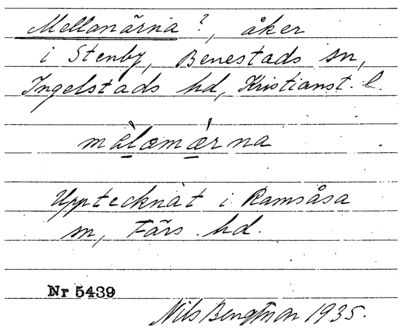 Mellanärna?, åker
i Stenby, Benestads sn,
Ingelstads hd, Kristianst. l.
mælomærna
Upptecknat i Ramsåsa
sn, Färs hd.
Nr 5439
Nils Bengtson 1935.